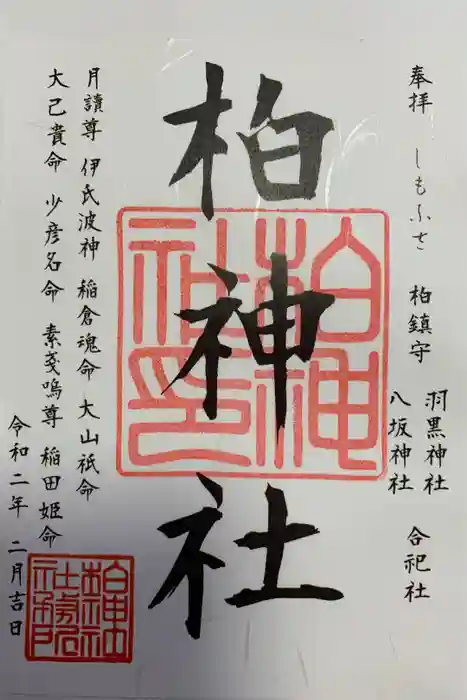 奉拝 しもふさ 柏鎮守 羽黒神社 八坂神社 合祀社
柏神社
柏神社印
月讀尊 伊氐波神 稲倉魂命 大山祇命
大己貴命 少彦名命 素戔嗚尊 稲田姫命
令和二年 二月吉日